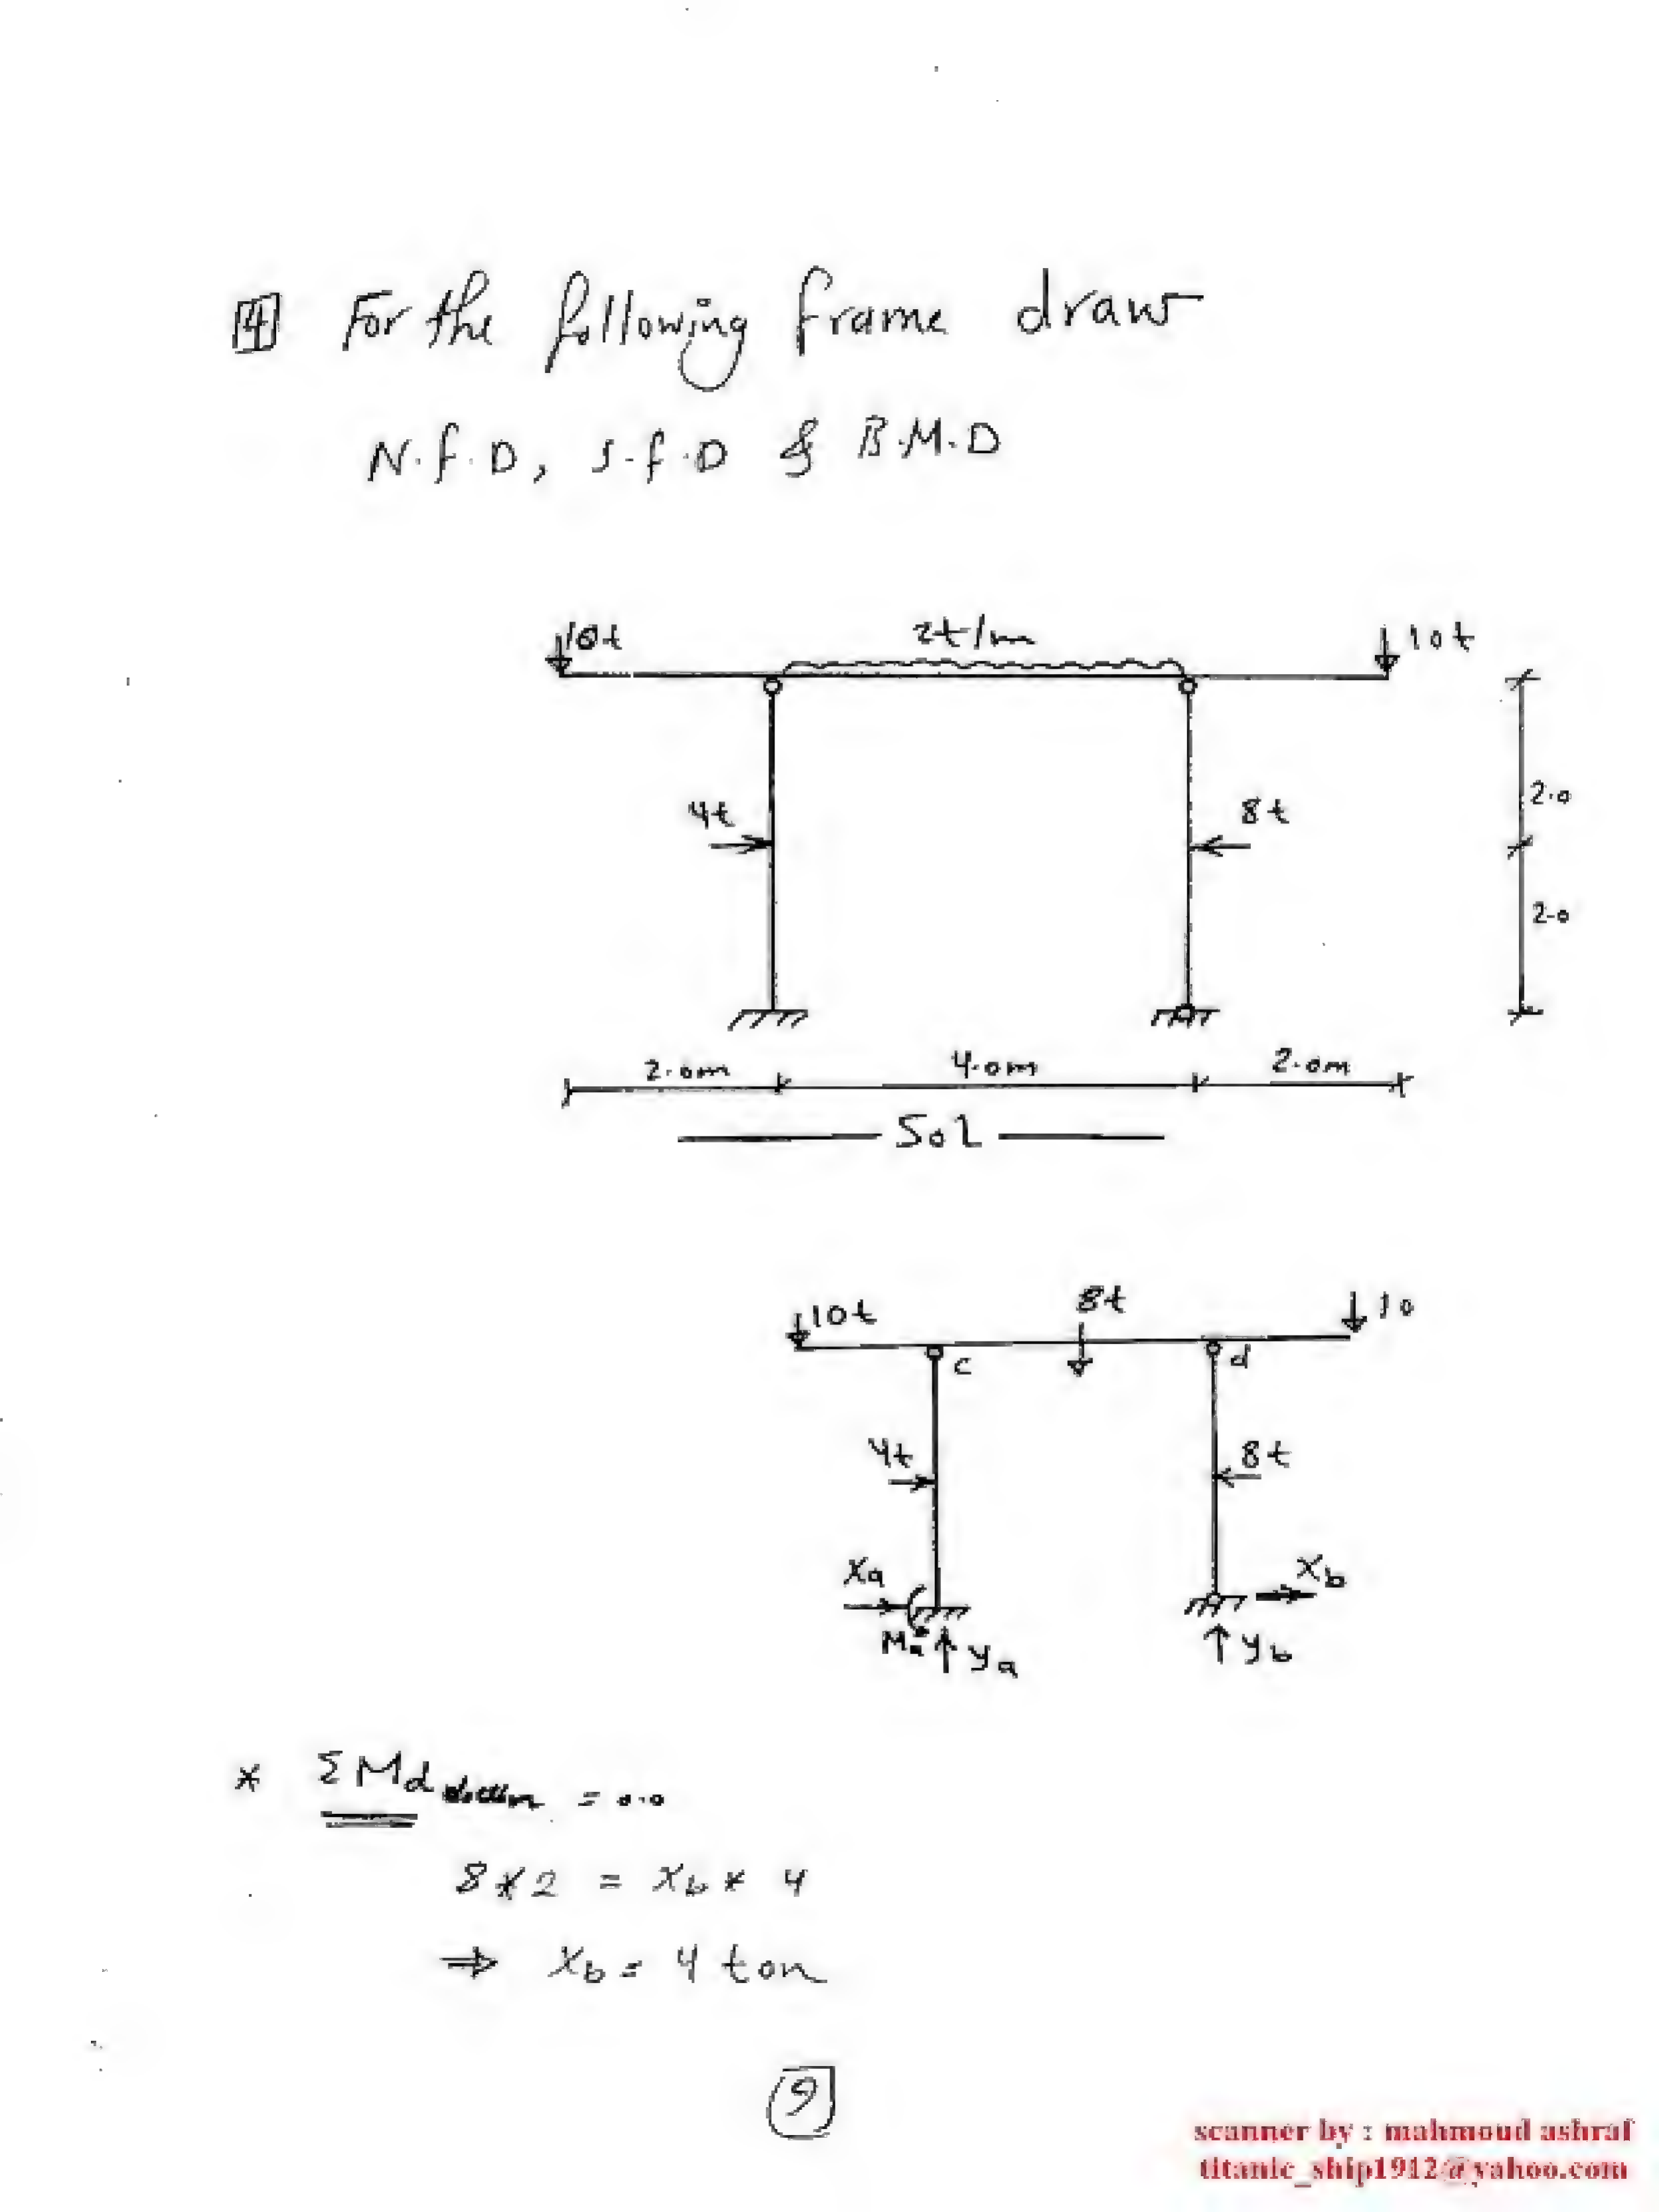 4 For the following frame draw
N.F.D, S.F.D & B.M.D
10t 2t/m 10t
4t 8t 2.0
2.0
2.0m 4.0m 2.0m
Sol
10t 8t 10
c d
4t 8t
Xa Xb
Ma Ya Yb
* ΣMd = 0.0
8*2 = Xb * 4
⇒ Xb = 4 ton
9
scanner by : mahmoud ashraf
titanic_ship1912@yahoo.com